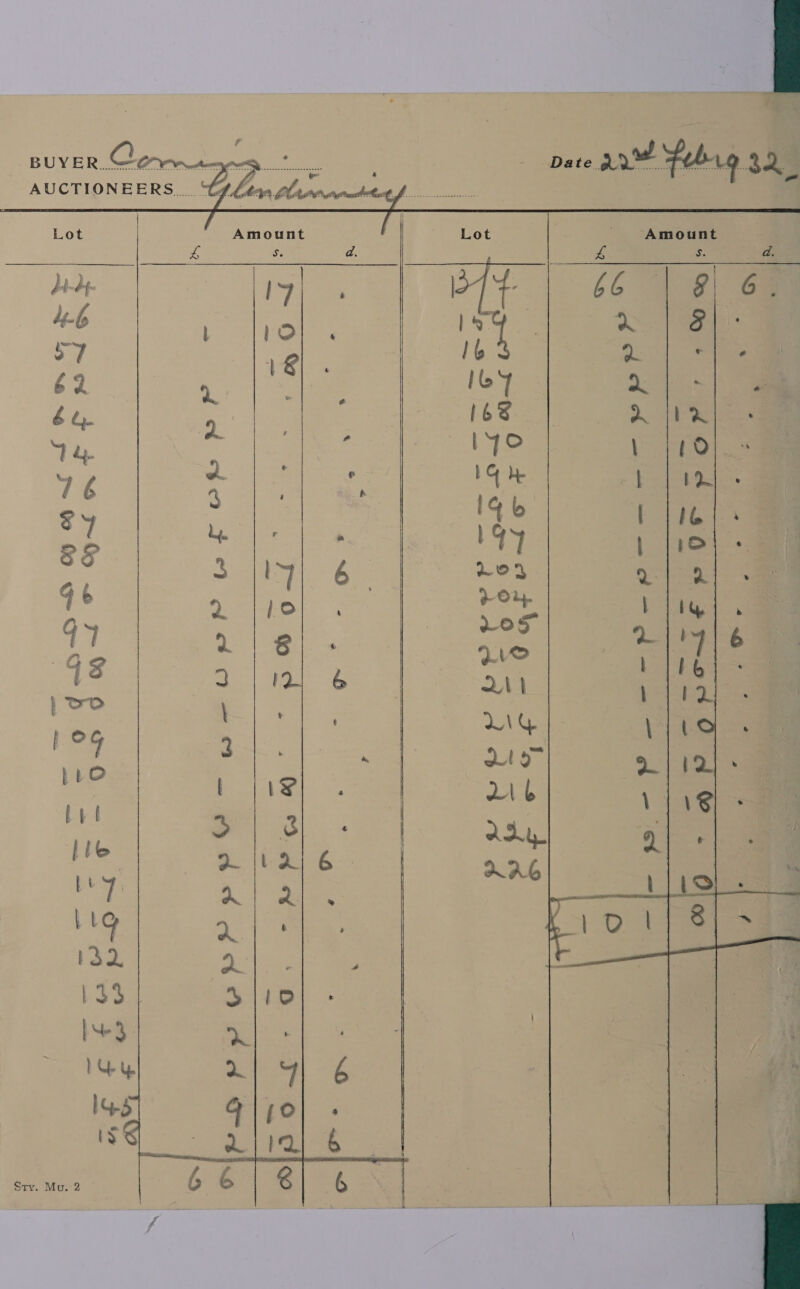 BUYER Date 22nd Feb 1932
AUCTIONEERS Glendining
Lot Amount Lot Amount
£ s. d. £ s. d.
44 17 . B/f. 66 8 6.
46 1 10 . 159 2 8 .
57 18 . 163 2 . .
62 2 . . 167 2 . .
64 2 . . 168 2 12 .
74 2 . . 170 1 10 .
76 3 . . 194 1 12 .
87 4 . . 196 1 16 .
88 3 17 6 197 1 10 .
96 2 10 . 203 2 2 .
97 2 8 . 204 1 14 .
98 3 12 6 205 2 17 6
100 1 . . 210 1 16 .
109 3 . . 211 1 12 .
110 1 18 . 214 1 10 .
111 3 3 . 215 2 12 .
116 2 12 6 216 1 18 .
117 2 2 . 224 2 . .
119 2 . . 226 1 10 .
132 2 . . £101 8 -
133 3 10 .
143 2 . .
144 2 7 6
145 9 10 .
158 2 12 6
66 8 6
Sty. Mu. 2